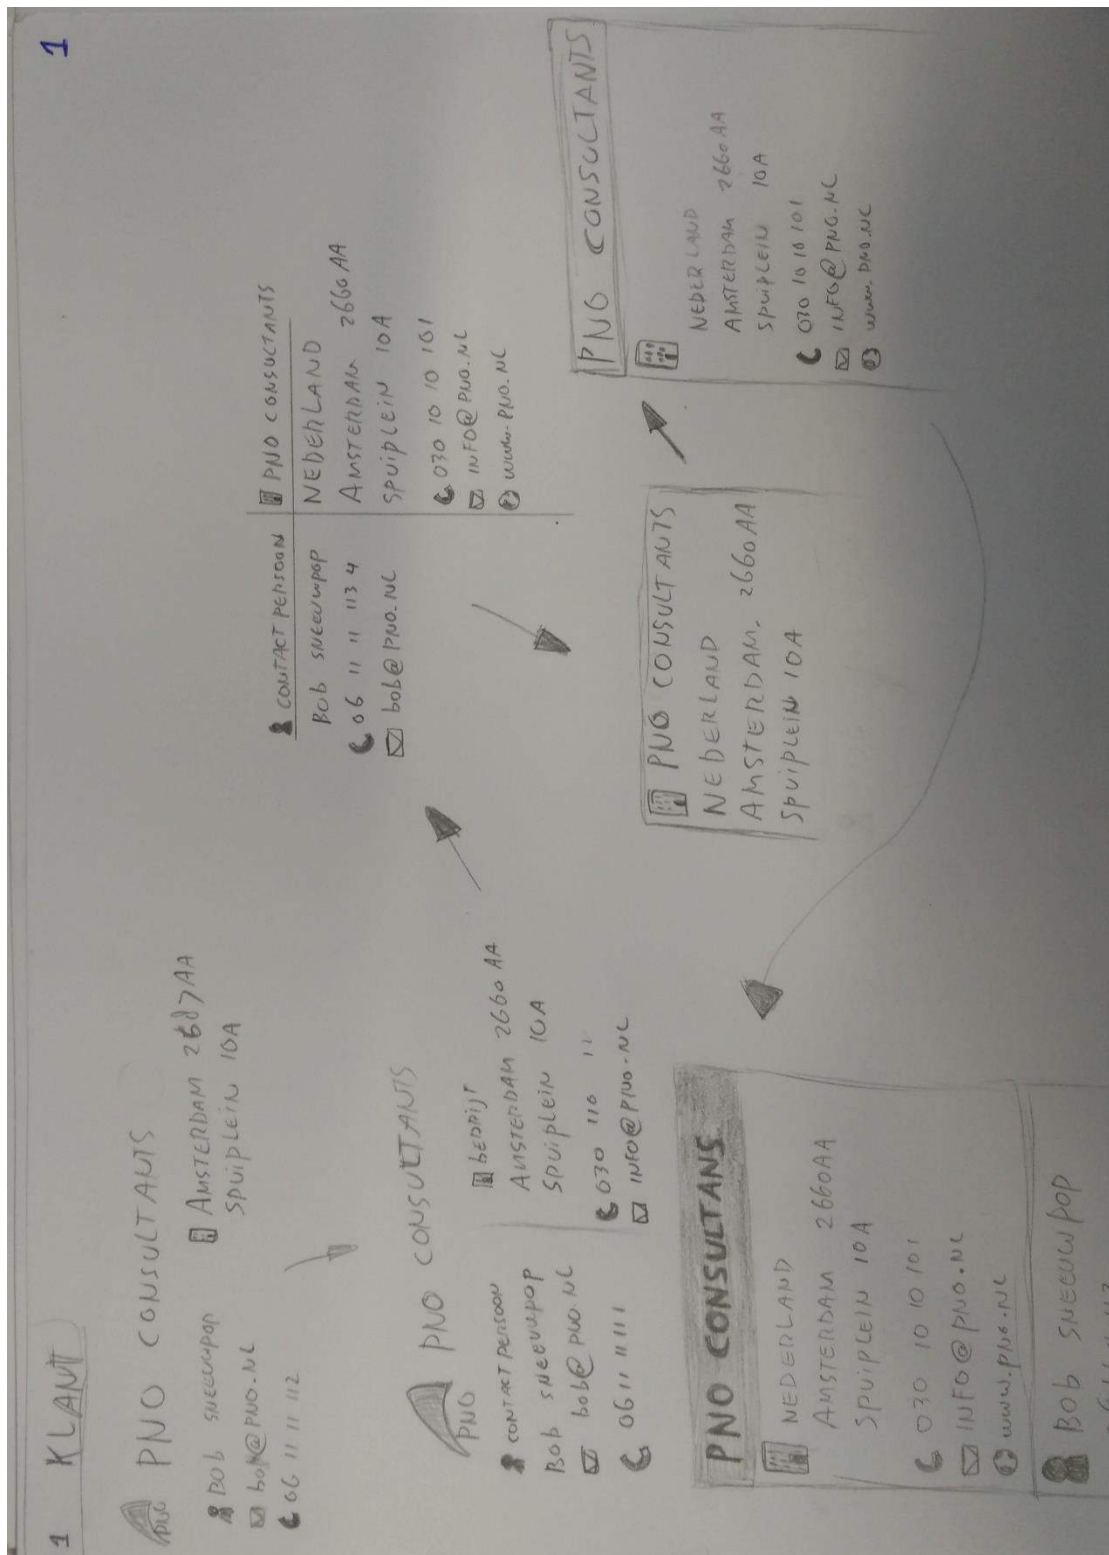 1 KLANT
1
PNO
PNO CONSULTANTS
Bob SNEEUWPOP
bob@PNO.NL
06 11 11 112
AMSTERDAM 2687AA
SPUIPLEIN 10A
PNO
PNO CONSULTANTS
CONTACT PERSOON
Bob SNEEUWPOP
bob@PNO.NL
06 11 11 111
bEDRIJF
AMSTERDAM 2660 AA
SPUIPLEIN 10A
030 110 11
INFO@PNO.NL
CONTACT PERSOON
Bob SNEEUWPOP
06 11 11 1134
bob@PNO.NL
PNO CONSULTANTS
NEDERLAND
AMSTERDAM 2660 AA
SPUIPLEIN 10A
030 10 10 101
INFO@PNO.NL
www.PNO.NL
PNO CONSULTANTS
NEDERLAND
AMSTERDAM. 2660AA
SPUIPLEIN 10A
PNO CONSULTANTS
NEDERLAND
AMSTERDAM 2660AA
SPUIPLEIN 10A
030 10 10 101
INFO@PNO.NL
www.PNO.NL
PNO CONSULTANS
NEDERLAND
AMSTERDAM 2660AA
SPUIPLEIN 10A
030 10 10 101
INFO@PNO.NL
www.PNO.NL
BOb SNEEUWPOP